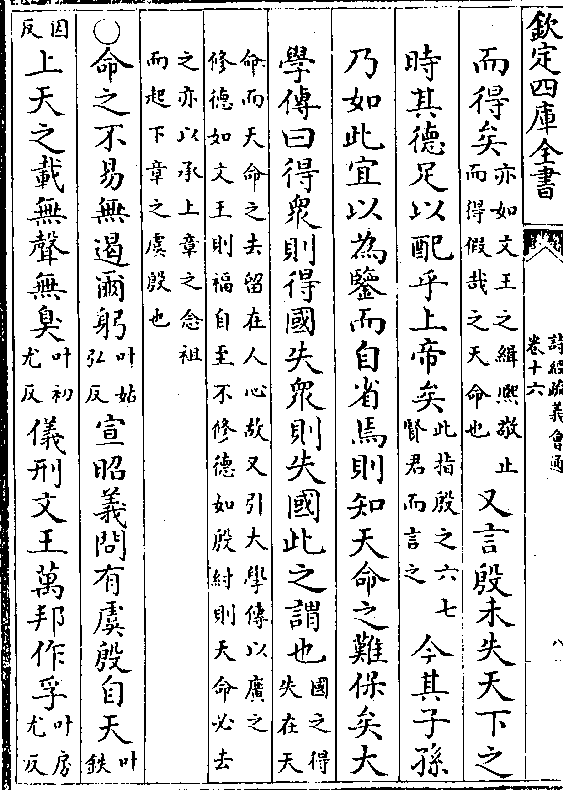 欽定四庫全書
詩經疏義會通
卷十六
八
而得矣亦如文王之緝熈敬止而得假哉之天命也又言殷未失天下之
時其德足以配乎上帝矣此指殷之六七賢君而言之今其子孫
乃如此宜以為鑒而自省焉則知天命之難保矣大
學傳曰得衆則得國失衆則失國此之謂也國之得失在天
命而天命之去留在人心故又引大學傳以廣之
修德如文王則福自至不修德如殷紂則天命必去
之亦以承上章之念祖
而起下章之虞殷也
○命之不易無遏爾躬叶姑弘反宣昭義問有虞殷自天叶鉄
因反上天之載無聲無臭叶初尤反儀刑文王萬邦作孚叶房尤反